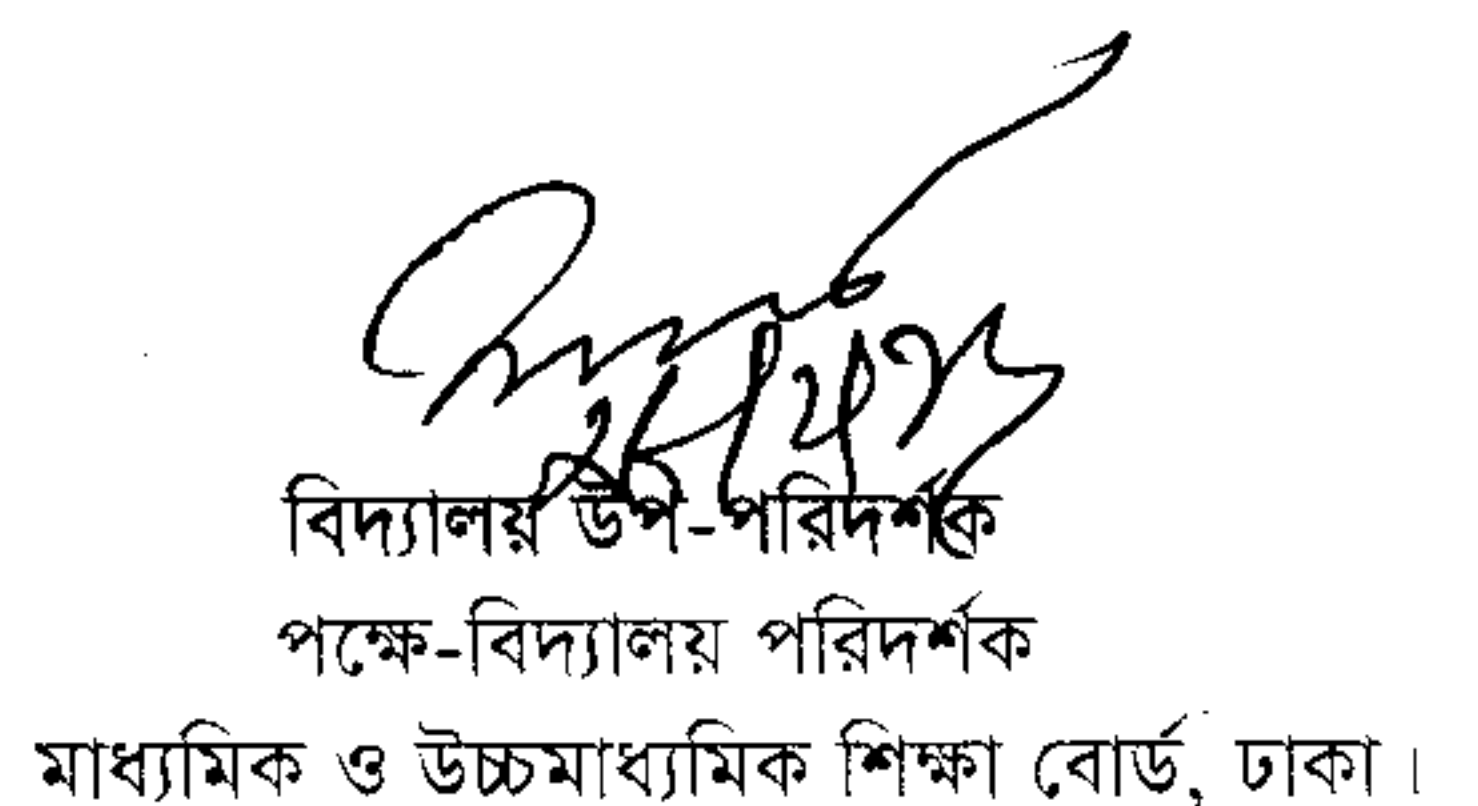 বিদ্যালয় উপ-পরিদর্শক
পক্ষে-বিদ্যালয় পরিদর্শক
মাধ্যমিক ও উচ্চমাধ্যমিক শিক্ষা বোর্ড, ঢাকা।